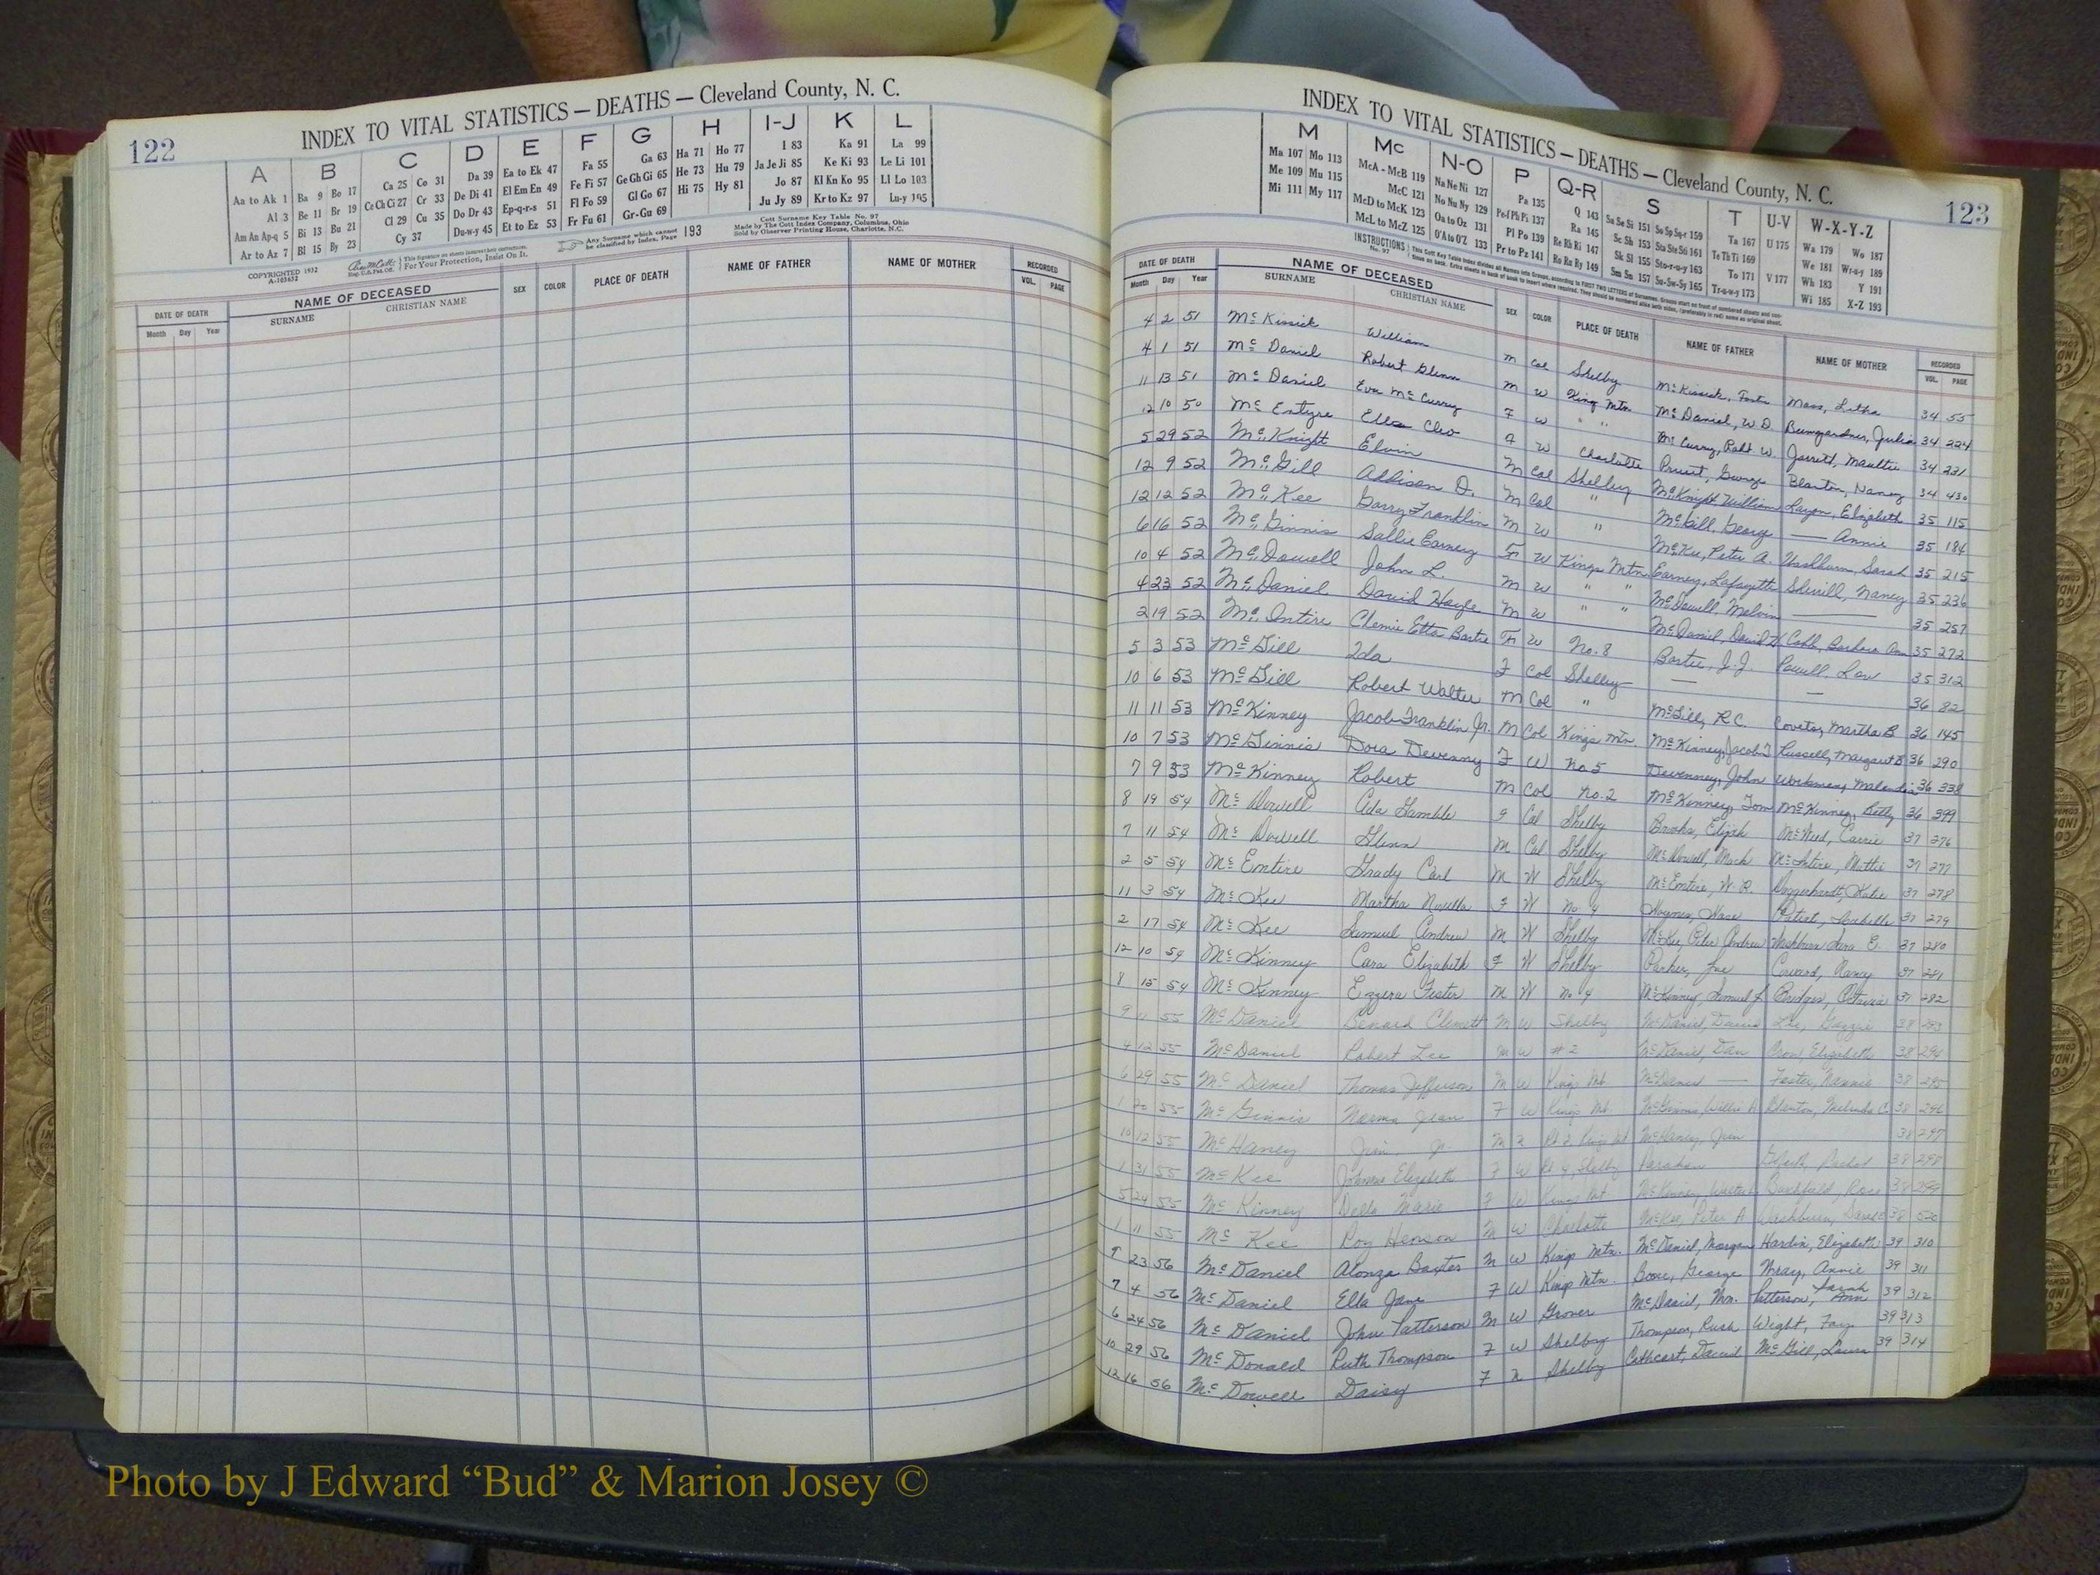 122
INDEX TO VITAL STATISTICS — DEATHS — Cleveland County, N. C.
A B C D E F G H I-J K L
Aa to Ak 1 Ba 9 Bo 17 Ca 25 Co 31 Da 39 Ea to Ek 47 Fa 55 Ga 63 Ha 71 Ho 77 I 83 Ka 91 La 99
Al 3 Be 11 Br 19 Ce Ch Ci 27 Cr 33 De Di 41 El Em En 49 Fe Fi 57 Ge Gh Gi 65 He 73 Hu 79 Ja Je Ji 85 Ke Ki 93 Le Li 101
Am An Ap-q 5 Bi 13 Bu 21 Cl 29 Cu 35 Do Dr 43 Ep-q-r-s 51 Fl Fo 59 Gl Go 67 Hi 75 Hy 81 Jo 87 Kl Kn Ko 95 Ll Lo 103
Ar to Az 7 Bl 15 By 23 Cy 37 Du-w-y 45 Et to Ez 53 Fr Fu 61 Gr-Gu 69 Ju Jy 89 Kr to Kz 97 Lu-y 105
COPYRIGHTED 1932
A-103652
This Signature on sheets insures best corrections.
For Your Protection, Insist On It.
Any Surname which cannot be classified by Index, Page 193
Cott Surname Key Table No. 97
Made by The Cott Index Company, Columbus, Ohio
Sold by Observer Printing House, Charlotte, N.C.
DATE OF DEATH NAME OF DECEASED SEX COLOR PLACE OF DEATH NAME OF FATHER NAME OF MOTHER RECORDED
Month Day Year SURNAME CHRISTIAN NAME VOL. PAGE
INDEX TO VITAL STATISTICS — DEATHS — Cleveland County, N. C.
123
M Mc N-O P Q-R S T U-V W-X-Y-Z
Ma 107 Mo 113 McA - McB 119 Na Ne Ni 127 Pa 135 Q 143 Sa Se Si 151 So Sp Sq-r 159 Ta 167 U 175 Wa 179 Wo 187
Me 109 Mu 115 McC 121 No Nu Ny 129 Pe-f Ph Pi 137 Ra 145 Sc Sh 153 Sta Ste Sti 161 Te Th Ti 169 We 181 Wr-u-y 189
Mi 111 My 117 McD to McK 123 Oa to Oz 131 Pl Po 139 Re Rh Ri 147 Sk Sl 155 Sto-r-u-y 163 To 171 V 177 Wh 183 Y 191
McL to McZ 125 O'A to O'Z 133 Pr to Pz 141 Ro Ru Ry 149 Sm Sn 157 Su-Sw-Sy 165 Tr-u-w-y 173 Wi 185 X-Z 193
INSTRUCTIONS No. 97
DATE OF DEATH NAME OF DECEASED SEX COLOR PLACE OF DEATH NAME OF FATHER NAME OF MOTHER RECORDED
Month Day Year SURNAME CHRISTIAN NAME VOL. PAGE
4 2 51 McKissick William M Col Shelby McKissick, Moss, Letha 34 55
4 1 51 McDaniel Robert Glenn M W King Mtn McDaniel, W D Bumgardner, Julia 34 224
11 13 51 McDaniel Eva McCurry F W " " McCurry, Robt. W. Jarrett, 34 231
12 10 50 McEntyre Ella Cleo F W Charlotte Pruett, George Blanton, Nancy 34 430
5 29 52 McKnight Elvin M Col Shelby McKnight William Elizabeth 35 115
12 9 52 McGill Addison D. M Col " McGill, George — Annie 35 184
12 12 52 McKee Garry Franklin M W " McKee, Peter A. Washburn, Sarah 35 215
6 16 52 McGinnis Sallie Earney F W Kings Mtn Earney, Lafayette Sherrill, Nancy 35 236
10 4 52 McDowell John L. M W " " McDowell, Melvin — 35 257
4 23 52 McDaniel David Hoyle M W " " McDaniel, David H Cobb, Barbara Ann 35 272
2 19 52 McIntire Clemie Etta Bartee F W No. 8 Bartee, J.J. Powell, 35 312
5 3 53 McGill Ida F Col Shelby — — 36 82
10 6 53 McGill Robert Walter M Col " McGill, R.C. Martha B. 36 145
11 11 53 McKinney Jacob Franklin Jr. M Col Kings Mtn. McKinney, Jacob F Russell, Margaret B 36 290
10 7 53 McGinnis Dora Devenny F W No 5 Devenney, John Workman, Malinda 36 338
7 9 53 McKinney Robert M Col No. 2 McKinney, Tom McKinney, Betty 36 399
8 19 54 McDowell Ada Gamble F Col Shelby Brooks, Elijah Carrie 37 276
7 11 54 McDowell Glenn M Col Shelby McDowell, Mack McIntire, Mattie 37 277
2 5 54 McEntire Grady Carl M W Shelby McEntire, W. R. Katie 37 278
11 3 54 McKee Martha Novella F W No 4 37 279
2 17 54 McKee Samuel Andrew M W Shelby McKee, Peter Andrew Washburn E. 37 280
12 10 54 McKinney Cara Elizabeth F W Shelby Parker, Coward, Nancy 37 281
8 15 54 McKinney Ezzera Foster M W No 4 McKinney, Samuel J Bridges, 37 282
9 55 McDaniel Benard M W Shelby McDaniel, Lee, 38 293
4 12 55 McDaniel Robert Lee M W #2 McDaniel, Dan Elizabeth 38 294
6 29 55 McDaniel Thomas Jefferson M W Kings Mt. McDaniel — Foster, Nannie 38 295
1 20 55 McGinnis Norma Jean F W Kings Mt. McGinnis, Willie Blanton, Melinda C. 38 296
10 12 55 McHaney Jim Jr M Rt 2 Kings Mt McHaney, Jim 38 297
1 31 55 McKee Elizabeth F W Rt 4, Shelby 38 298
5 24 55 McKinney Della Marie F W Kings Mt McKinney, 38 299
1 11 55 McKee Roy Henson M W Charlotte McKee, Peter A Washburn, 38 520
9 23 56 McDaniel Alonza Baxter M W Kings Mtn. McDaniel, Morgan Hardin, Elizabeth 39 310
7 4 56 McDaniel Ella Jane F W Kings Mtn. Boone, George Wray, Annie 39 311
6 24 56 McDaniel John Patterson M W Grover McDaniel, Wm. Patterson, Sarah Ann 39 312
10 29 56 McDonald Ruth Thompson F W Shelby Thompson, Rush Wight, Fay 39 313
12 16 56 McDowell Daisy F N Shelby Cathcart, David McGill, Laura 39 314
Photo by J Edward “Bud” & Marion Josey ©